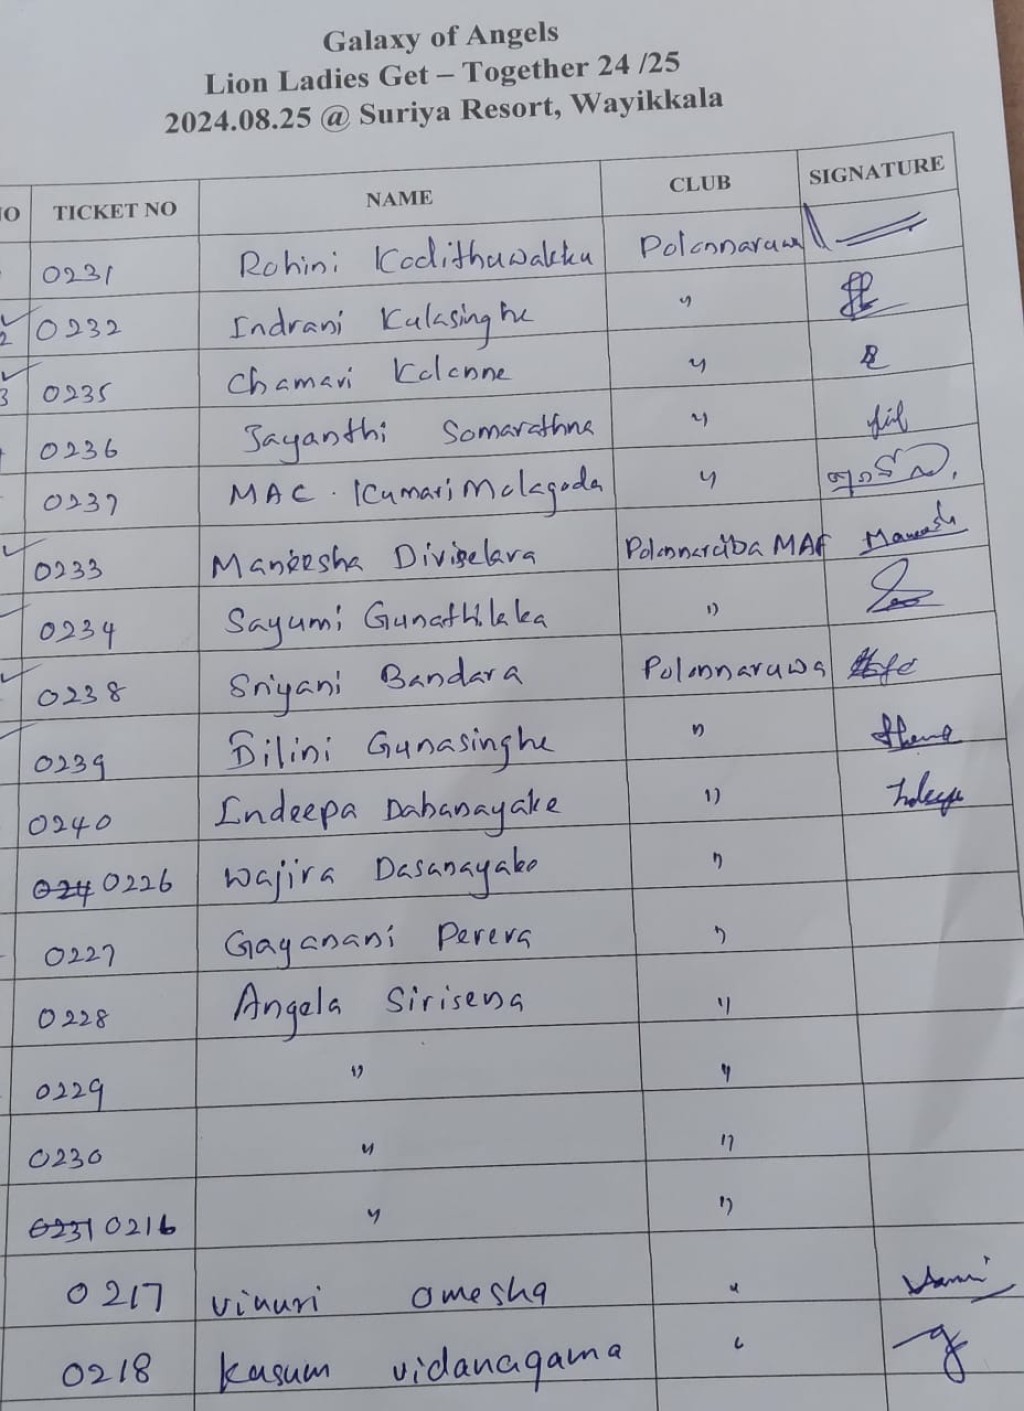 Galaxy of Angels
Lion Ladies Get – Together 24 /25
2024.08.25 @ Suriya Resort, Wayikkala
NO TICKET NO NAME CLUB SIGNATURE
0231 Rohini Kodithuwakku Polonnaruwa
2 0232 Indrani Kulasinghe "
3 0235 Chamari Kolonne "
0236 Jayanthi Somarathna "
0237 MAC. Kumari Molagoda "
0233 Maneesha Divisekara MAF
0234 Sayumi Gunathilaka "
0238 Sriyani Bandara Polonnaruwa
0239 Dilini Gunasinghe "
0240 Indeepa Dabanayake "
024 0226 Wajira Dasanayake "
0227 Gayanani Perera "
0228 Angela Sirisena "
0229 " "
0230 " "
0231 0216 " "
0217 Vinuri Omesha "
0218 Kasum Vidanagama "